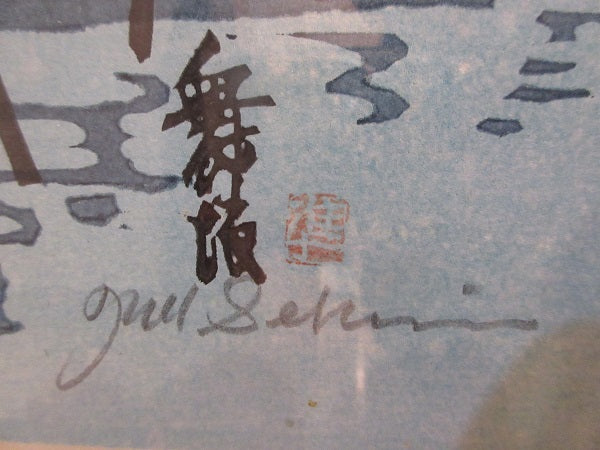 舞坂
Jun Sekino